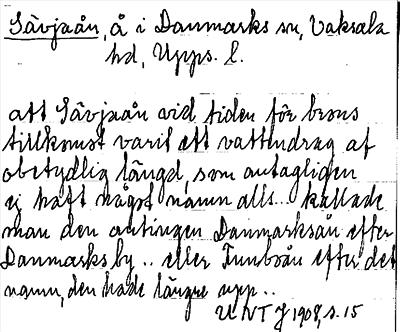 Sävjaån, å i Danmarks sn, Vaksala
hd, Upps. l.
att Sävjaån vid tiden för brons
tillkomst varit ett vattendrag af
obetydlig längd, som antagligen
ej haft något namn alls... kallade
man den antingen Danmarksån efter
Danmarks by .. eller Funboån efter det
namn, den hade längre upp ..
UNT J 1908, s. 15